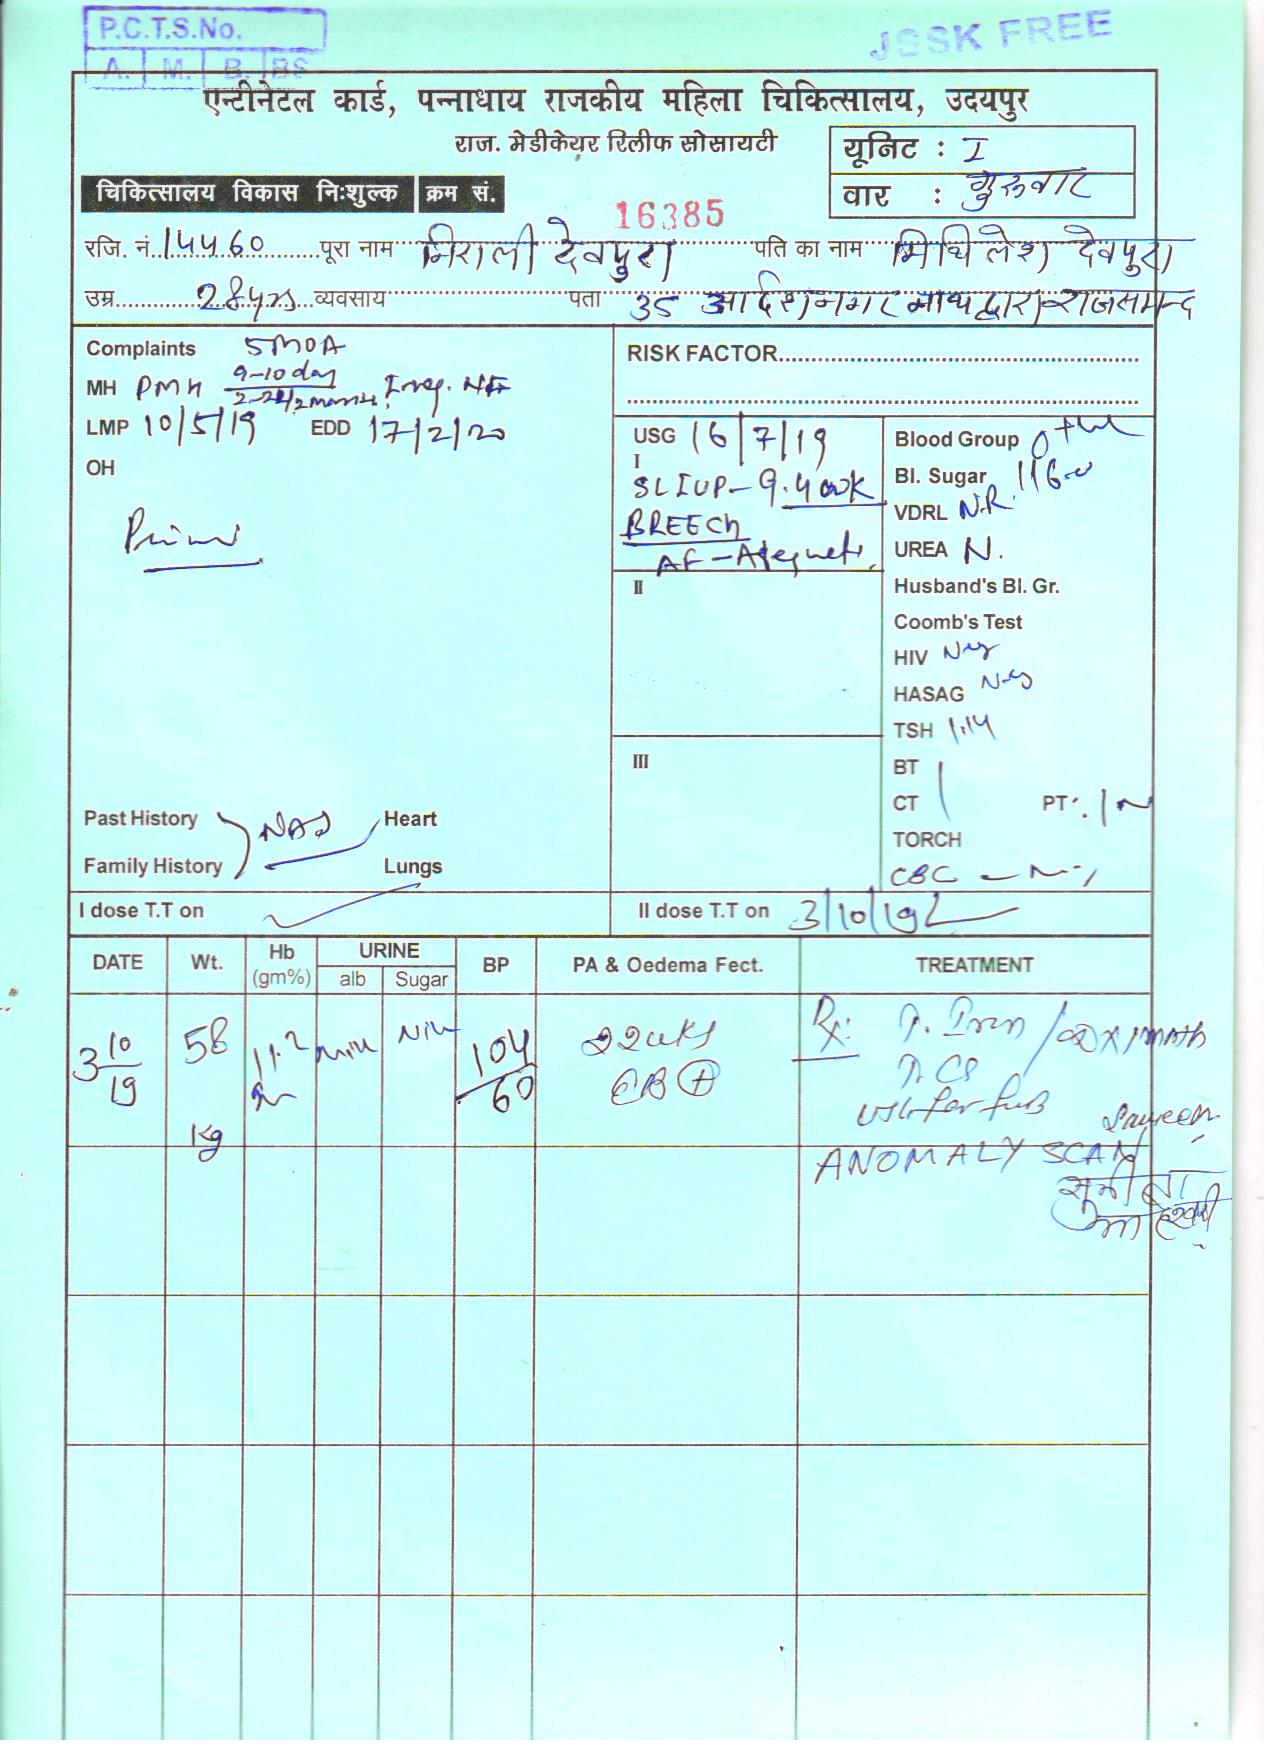 P.C.T.S.No.
A. M. B. BS
JSSK FREE
एन्टीनेटल कार्ड, पन्नाधाय राजकीय महिला चिकित्सालय, उदयपुर
राज. मेडीकेयर रिलीफ सोसायटी
यूनिट : I
वार : गुरुवार
चिकित्सालय विकास निःशुल्क क्रम सं. 16385
रजि. नं. 14460 पूरा नाम मिराली देवपुरा पति का नाम मिथिलेश देवपुरा
उम्र 28yrs व्यवसाय पता 35 आर्दशनगर नाथद्वारा राजसमन्द
Complaints 5MOA
RISK FACTOR
MH PMH 9-10 day Irreg. NF
2-2 1/2 months
LMP 10/5/19 EDD 17/2/20
OH
Primi
USG 16/7/19
I
SLIUP - 9.4 wk
BREECH
AF - Adequate
II
III
Blood Group O +ve
Bl. Sugar 116
VDRL N.R.
UREA N.
Husband's Bl. Gr.
Coomb's Test
HIV Neg
HASAG Neg
TSH 1.14
BT
CT PT
TORCH
CBC - N
Past History NAD Heart
Family History Lungs
I dose T.T on II dose T.T on 3/10/19
DATE Wt. Hb (gm%) URINE alb Sugar BP PA & Oedema Fect. TREATMENT
3/10/19 58 Kg 11.2 gm Nil Nil 104/60 22wks
Rx: T. Iron
USG for
ANOMALY SCAN